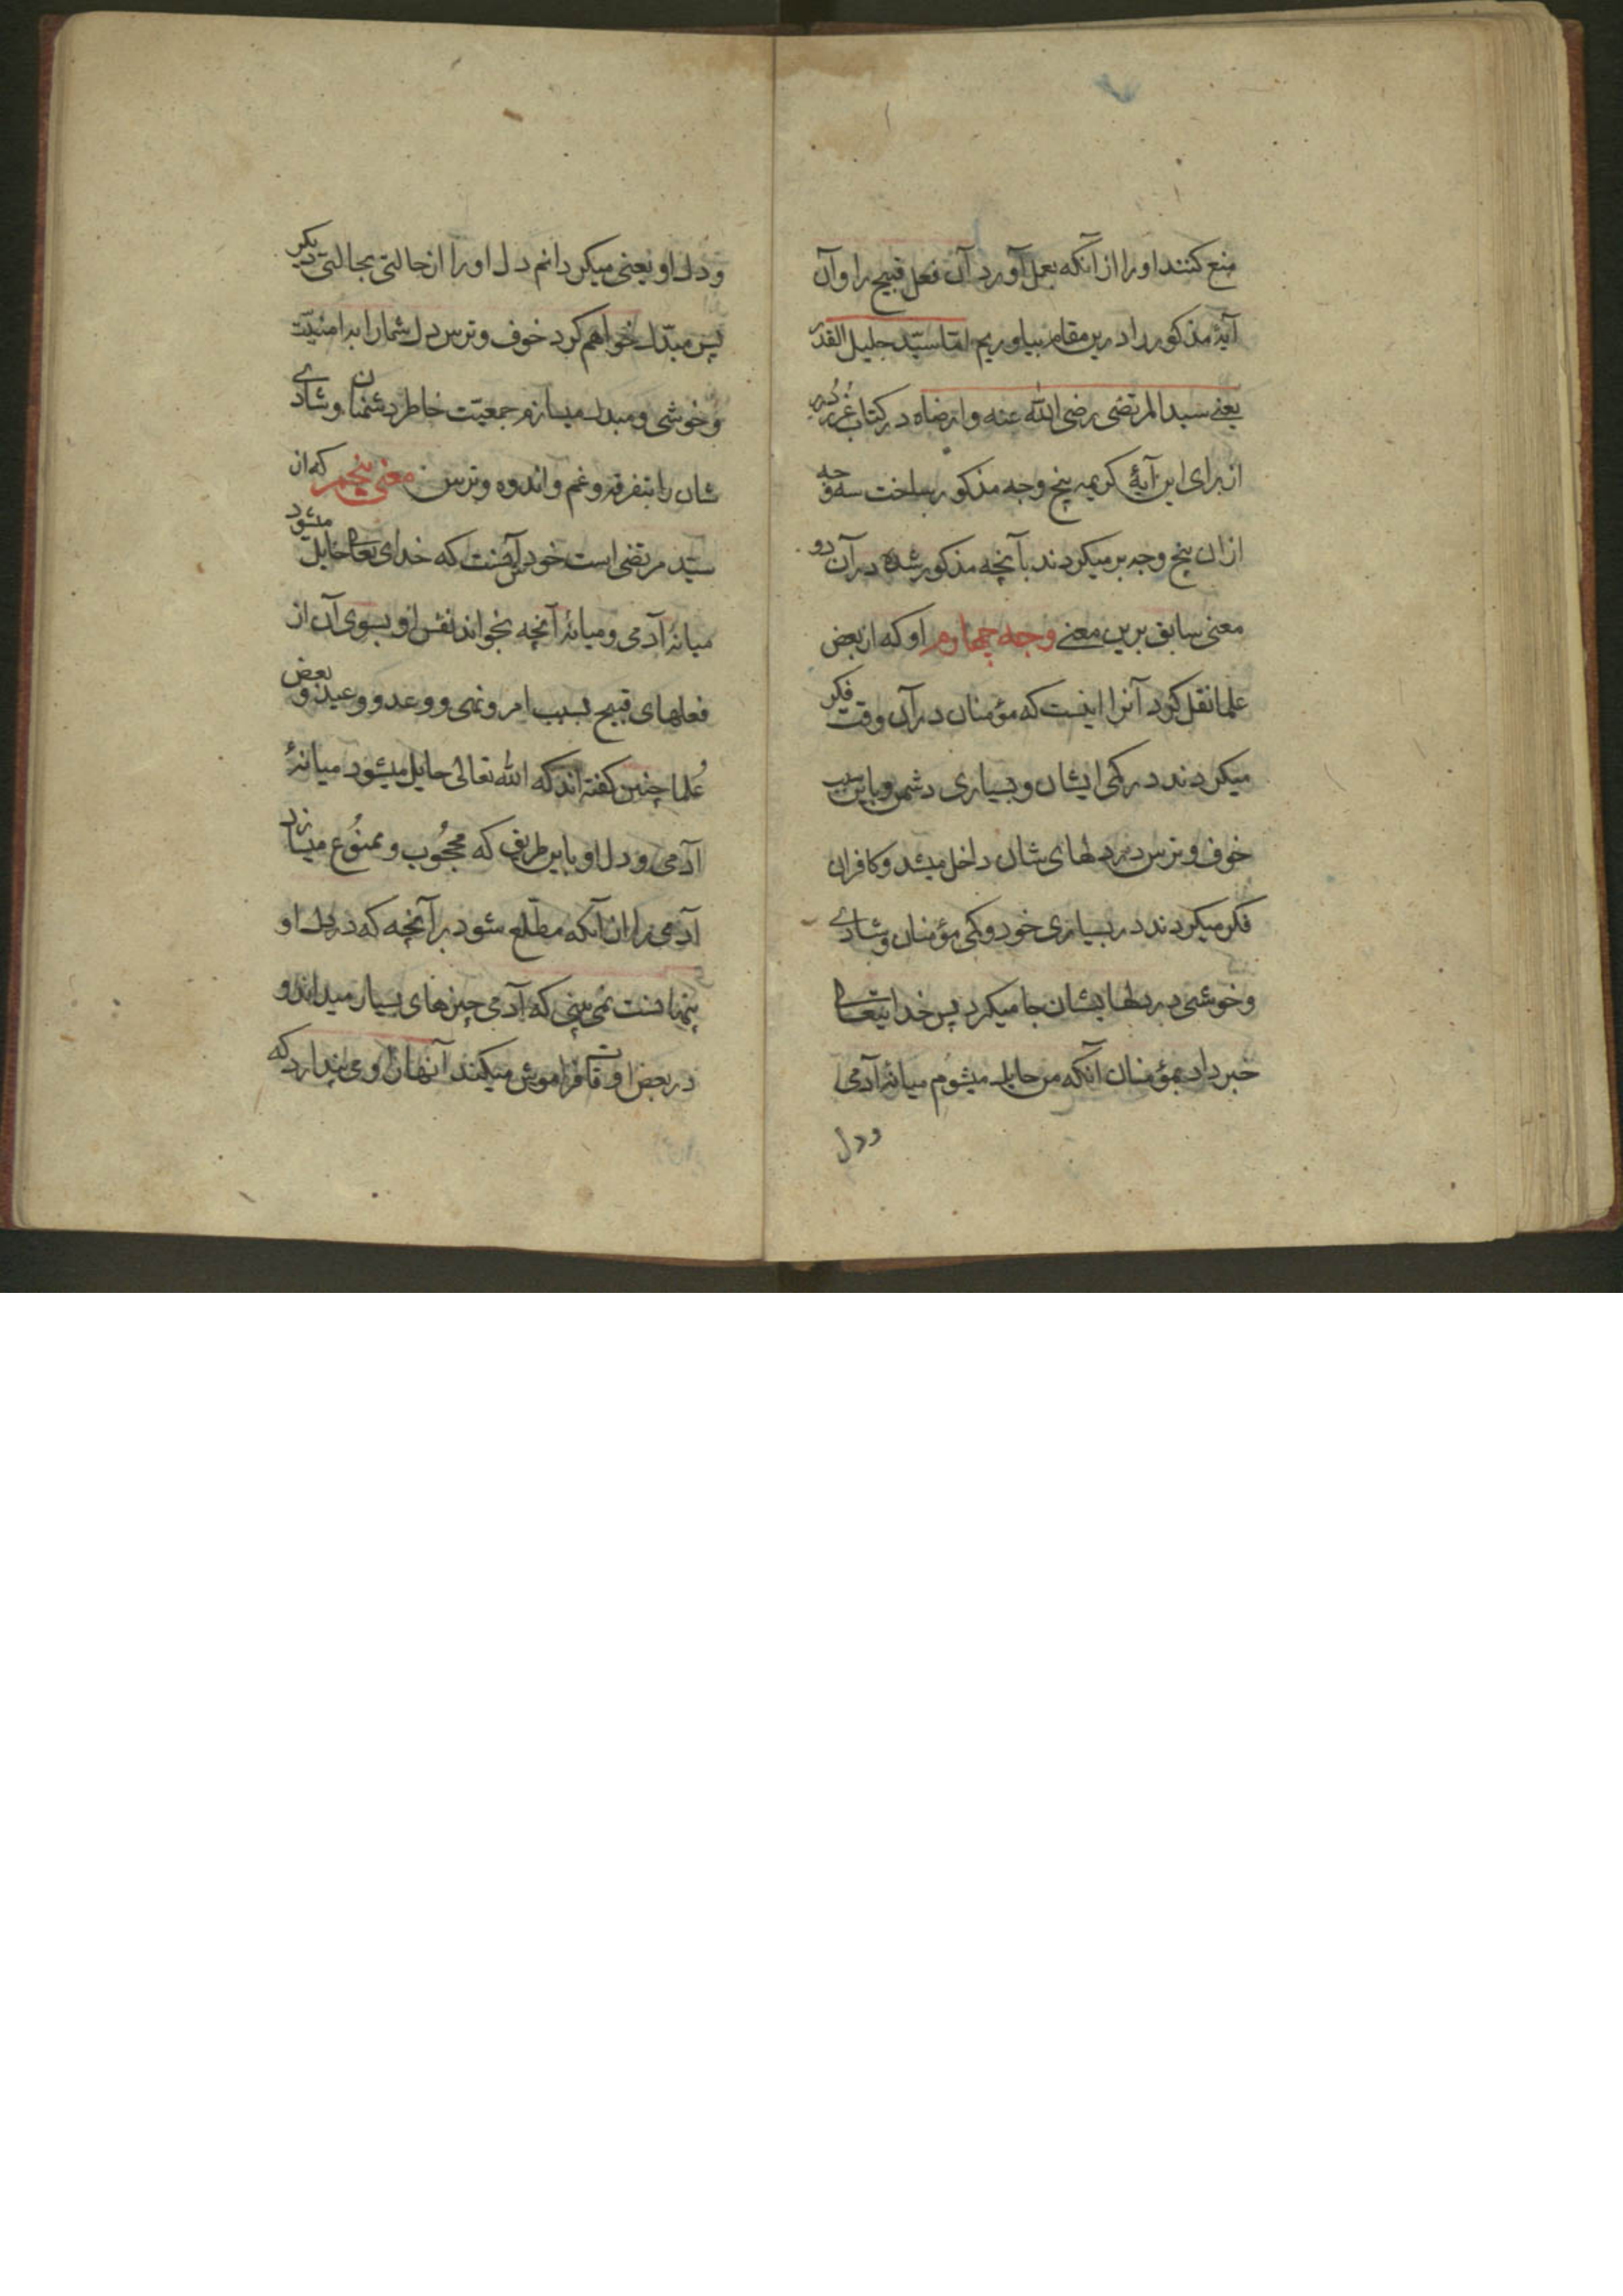 منع کنند او را از آنکه بعمل آورد آن فعل قبیح را و آن
آیهٔ مذکور را درین مقام بیاوریم امّا سیّد جلیل القدر
یعنے سید المرتضی رضی الله عنه و ارضاه در کتاب غرر درر
از برای این آیهٔ کریمه پنج وجه مذکور ساخت سه وجه
ازان پنج وجه بر میکردند بآنچه مذکور شده در آن دو
معنی سابق برین معنے وجه چهارم او که از بعض
علما نقل کرد آنرا اینست که مؤمنان در آن وقت فکر
میکردند در کمی ایشان و بسیاری دشمن و باین سبب
خوف و ترس در دلهای شان داخل میشد و کافران
فکر میکردند در بسیاری خود و کمی مؤمنان و شادے
و خوشی در دلهایشان جا میکرد پس خدایتعالی
خبر داد بمؤمنان آنکه من حایل میشوم میانهٔ آدمی
و دل
و دل او یعنی میکردانم دل او را از حالتی بحالتی دیکر
پس مبدّل خواهم کرد خوف و ترس دل شما را به امنیّت
و خوشی و مبدل میسازم جمعیّت خاطر دشمنان و شادے
شان را بتفرقه و غم و اندوه و ترس معنی پنجم که از
سیّد مرتضی است خود آنست که خدای تعالی حایل میشود
میانهٔ آدمی و میانهٔ آنچه بخواند نفس او بسوی آن از
فعلهای قبیح بسبب امر و نهی و وعد و وعید و بعض
علما چنین کفته اند که الله تعالی حایل میشود میانهٔ
آدمی و دل او باین طریق که محجُوب و ممنُوع میسازد
آدمی را از آنکه مطّلع شود بر آنچه که در دل او
پنهانست نمی بینی که آدمی چیزهای بسیار میداند و
در بعض اوقات فراموش میکند آنها را و می پندارد که